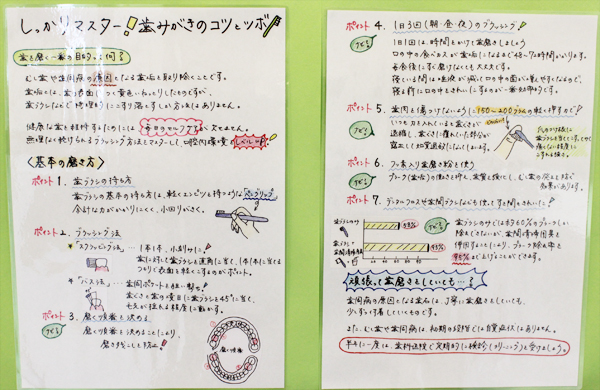 しっかりマスター!歯みがきのコツとツボ
歯を磨く一番の目的は何?
むし歯や歯周病の原因となる歯垢を取り除くことです。
歯垢は、歯の表面につく黄色いねっとりしたものですが、
歯ブラシなどで物理的にこすり落とすしか方法はありません。
健康な歯を維持するためには、毎日のセルフケアが欠かせません。
無理なく続けられるブラッシング方法をマスターして口腔内環境のレベルUP!
〈基本の磨き方〉
ポイント1. 歯ブラシの持ち方
歯ブラシの基本の持ち方は、軽くエンピツを持つような「ペングリップ」
余計な力がかかりにくく、小回りがきく。
ポイント2. ブラッシング法
"スクラッビング法"… 1本1本、小刻みに!
歯に対して歯ブラシを直角に当て、1本1本に当てる
つもりで表面を軽くこするのがポイント。
"バス法"… 歯周ポケットを狙い撃ち!
歯ぐきと歯の境目に歯ブラシを45°に当て、
毛先が揺れる程度に動かす。
ポイント3. 磨く順番を決める
ナゼ? 磨く順番を決めることにより、
磨き残しを防止!
磨く順番
ポイント4. 1日3回(朝・昼・夜)のブラッシング!
ナゼ? 1日1回は、時間をかけて歯磨きしましょう
口の中の食べカスが歯垢になるまで48〜72時間かかります。
毎食後にすぐ磨けなくても大丈夫です。
夜、寝ている間は唾液が減って口の中の菌がふえやすくなるので、
寝る前に口の中をきれいにするのが一番効果的です。
ポイント5. 歯肉を傷つけないように!150〜200グラムの軽く押す力で!
ナゼ? いつも力を入れていると歯ぐきが
退縮し、歯ぐきに覆われた部分が
露出して知覚過敏になってしまいます。
ポイント6. フッ素入り歯磨き粉を使う
ナゼ? プラーク(歯垢)の働きを抑え、歯質を強化し、むし歯の発生を防ぐ
効果があります。
ポイント7. デンタルフロスや歯間ブラシなども使ってすき間もきれいに!
歯ブラシのみ
58%
歯ブラシ+
歯間清掃用具
95%
ナゼ? 歯ブラシのみでは約60%のプラークしか
除去できないが、歯間清掃用具を
併用することにより、プラーク除去率を
95%まで上げることができます。
頑張って歯磨きをしていても…!
歯周病の原因となる歯石は、丁寧に歯磨きをしていても、
少しずつ付着していくものです。
また、むし歯や歯周病は、初期の段階では自覚症状はありません。
半年に一度は、歯科医院で定期的に検診(クリーニング)を受けましょう。